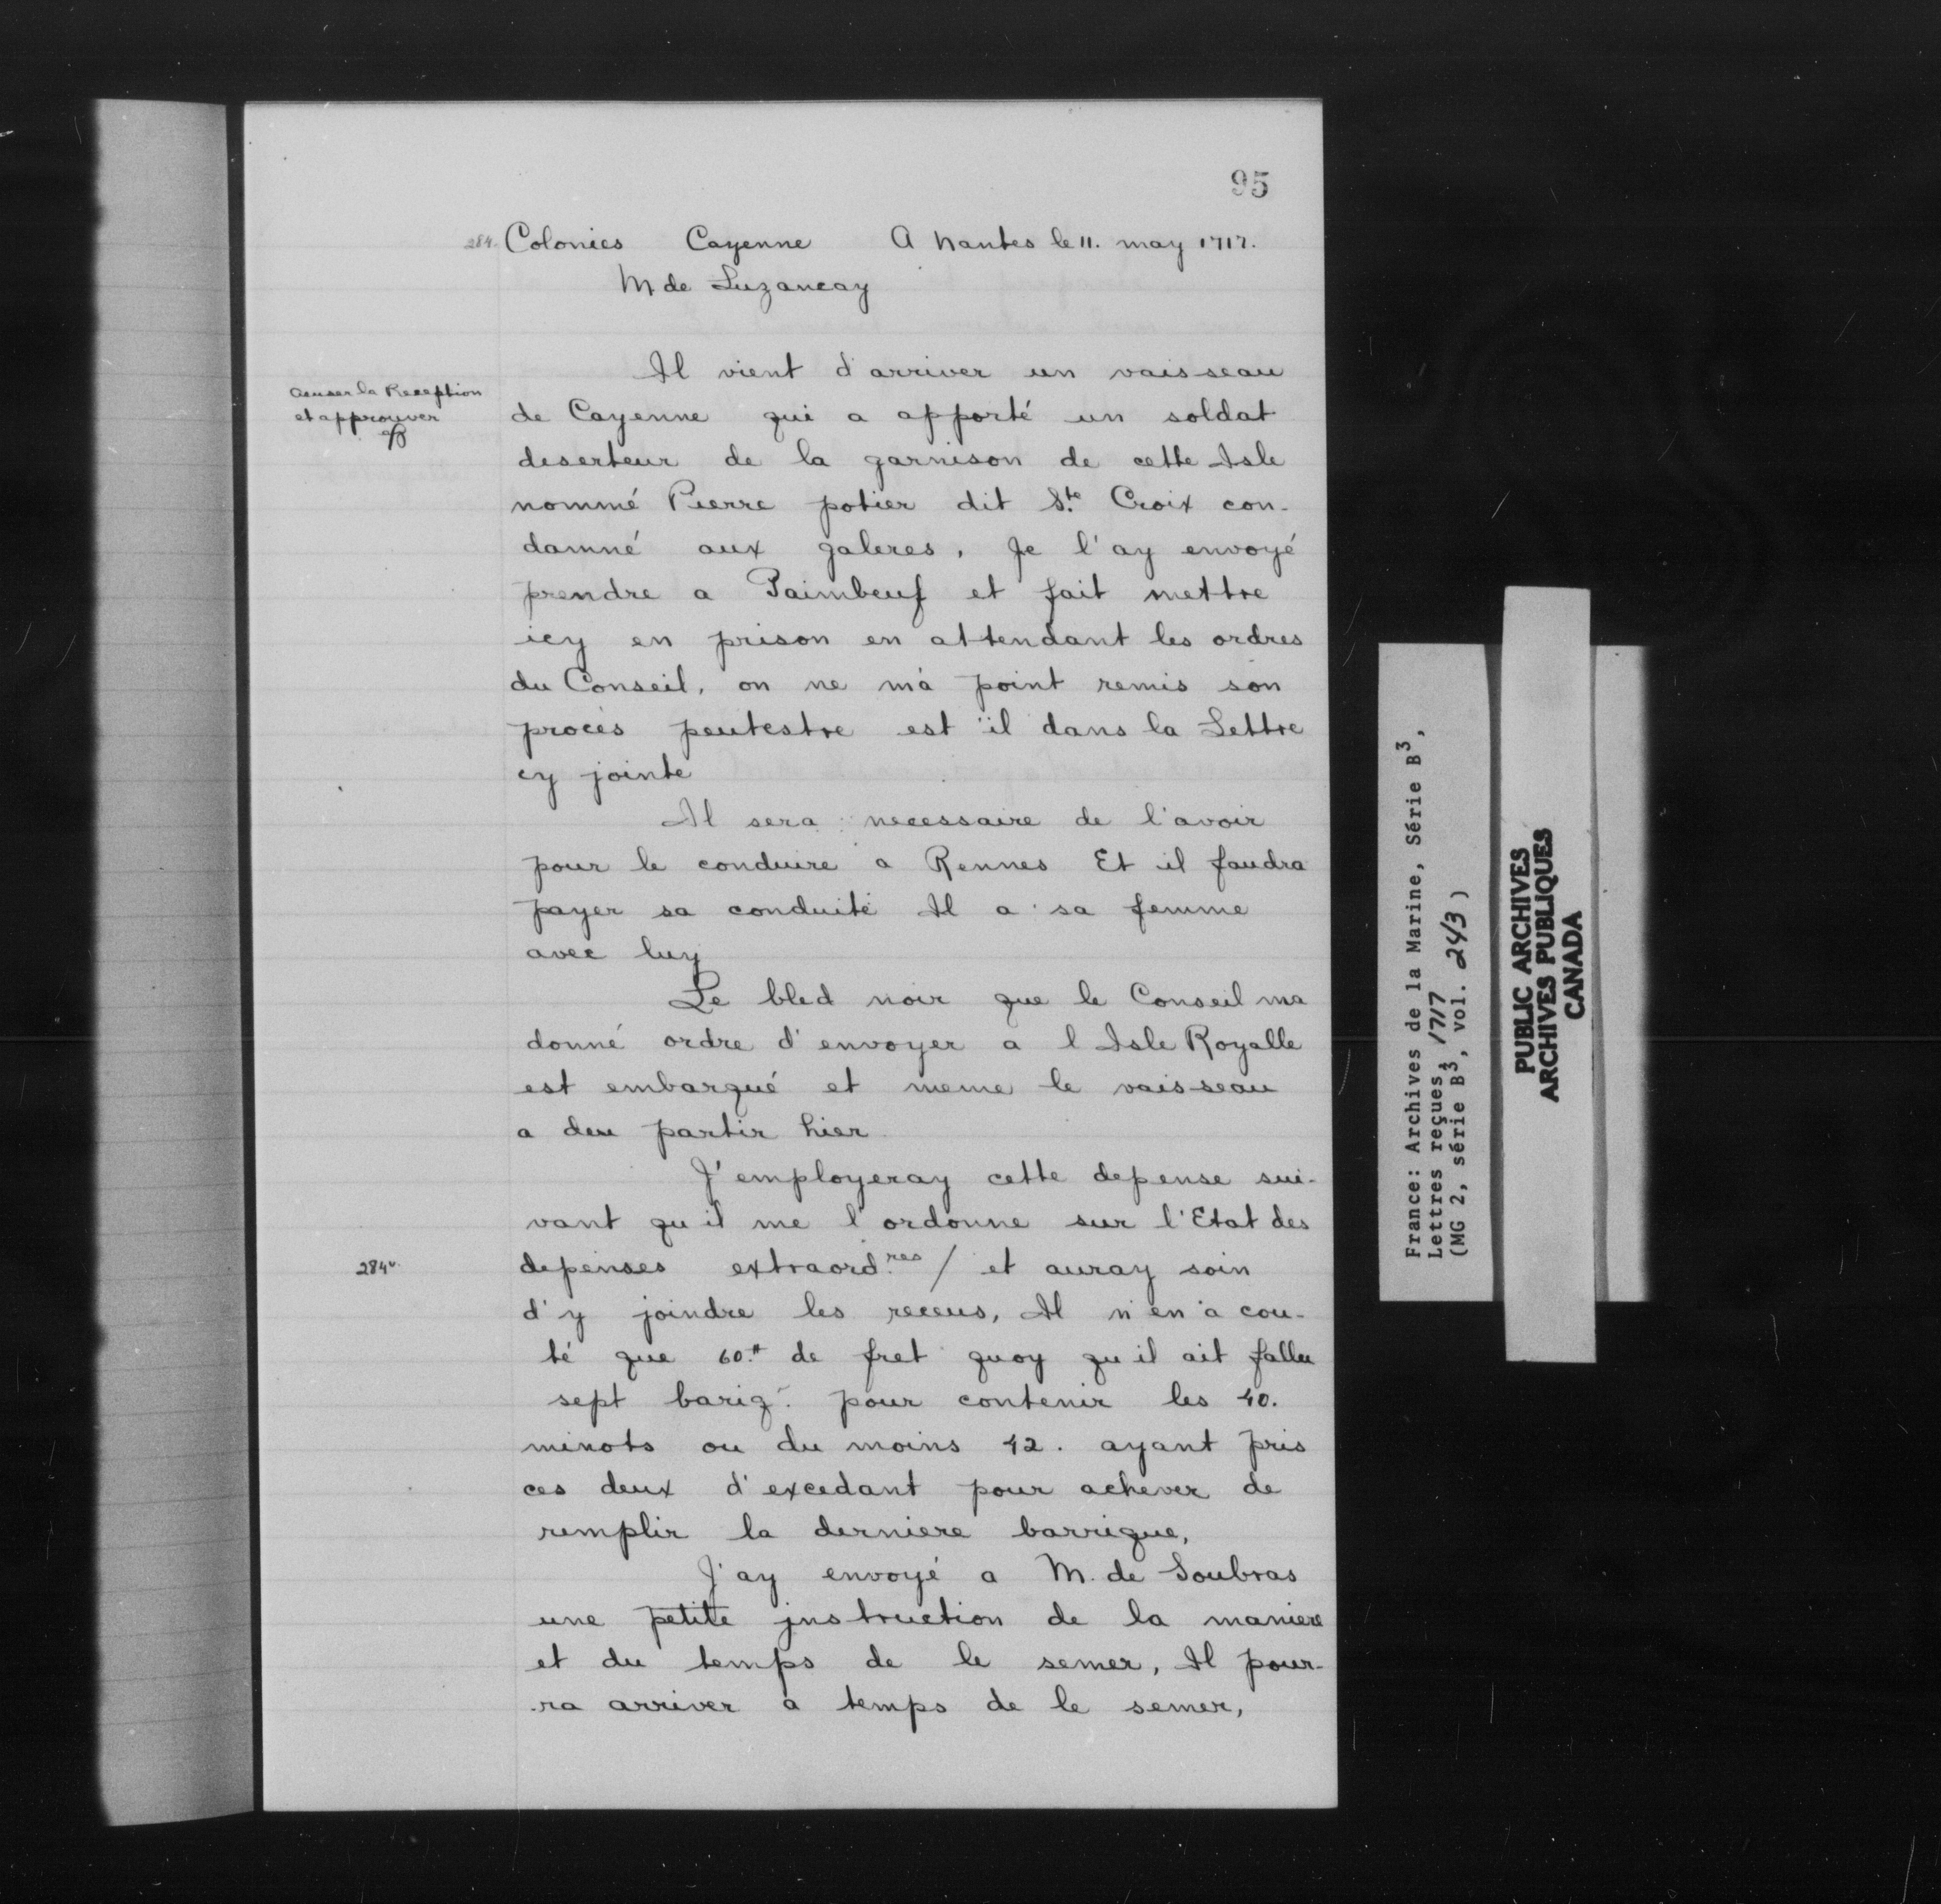 95
284. Colonies Cayenne A Nantes le 11. may 1717.
M de Luzancay
accuser la Reception
et approuver
Il vient d'arriver un vaisseau
de Cayenne qui a apporté un soldat
deserteur de la garnison de cette Isle
nommé Pierre potier dit Ste. Croix con-
damné aux galeres, Je l'ay envoyé
prendre a Paimbeuf et fait mettre
icy en prison en attendant les ordres
du Conseil, on ne m'a point remis son
procès peutestre est il dans la Lettre
cy jointe
Il sera necessaire de l'avoir
pour le conduire a Rennes Et il faudra
payer sa conduite Il a sa femme
avec luy
Le bled noir que le Conseil ma
donné ordre d'envoyer a l Isle Royalle
est embarqué et meme le vaisseau
a deu partir hier
J'employeray cette depense sui-
vant qu'il me l'ordonne sur l'Etat des
284v. depenses extraord.res / et auray soin
d'y joindre les receus, Il n'en a cou-
té que 60.# de fret quoy qu'il ait fallu
sept bariq. pour contenir les 40.
minots ou du moins 42. ayant pris
ces deux d'excedant pour achever de
remplir la derniere barrique,
J'ay envoyé a M. de Soubras
une petite jnstruction de la maniere
et du temps de le semer, Il pour-
ra arriver a temps de le semer,
France: Archives de la Marine, Série B3,
Lettres reçues, 1717
(MG 2, série B3, vol. 243)
PUBLIC ARCHIVES
ARCHIVES PUBLIQUES
CANADA